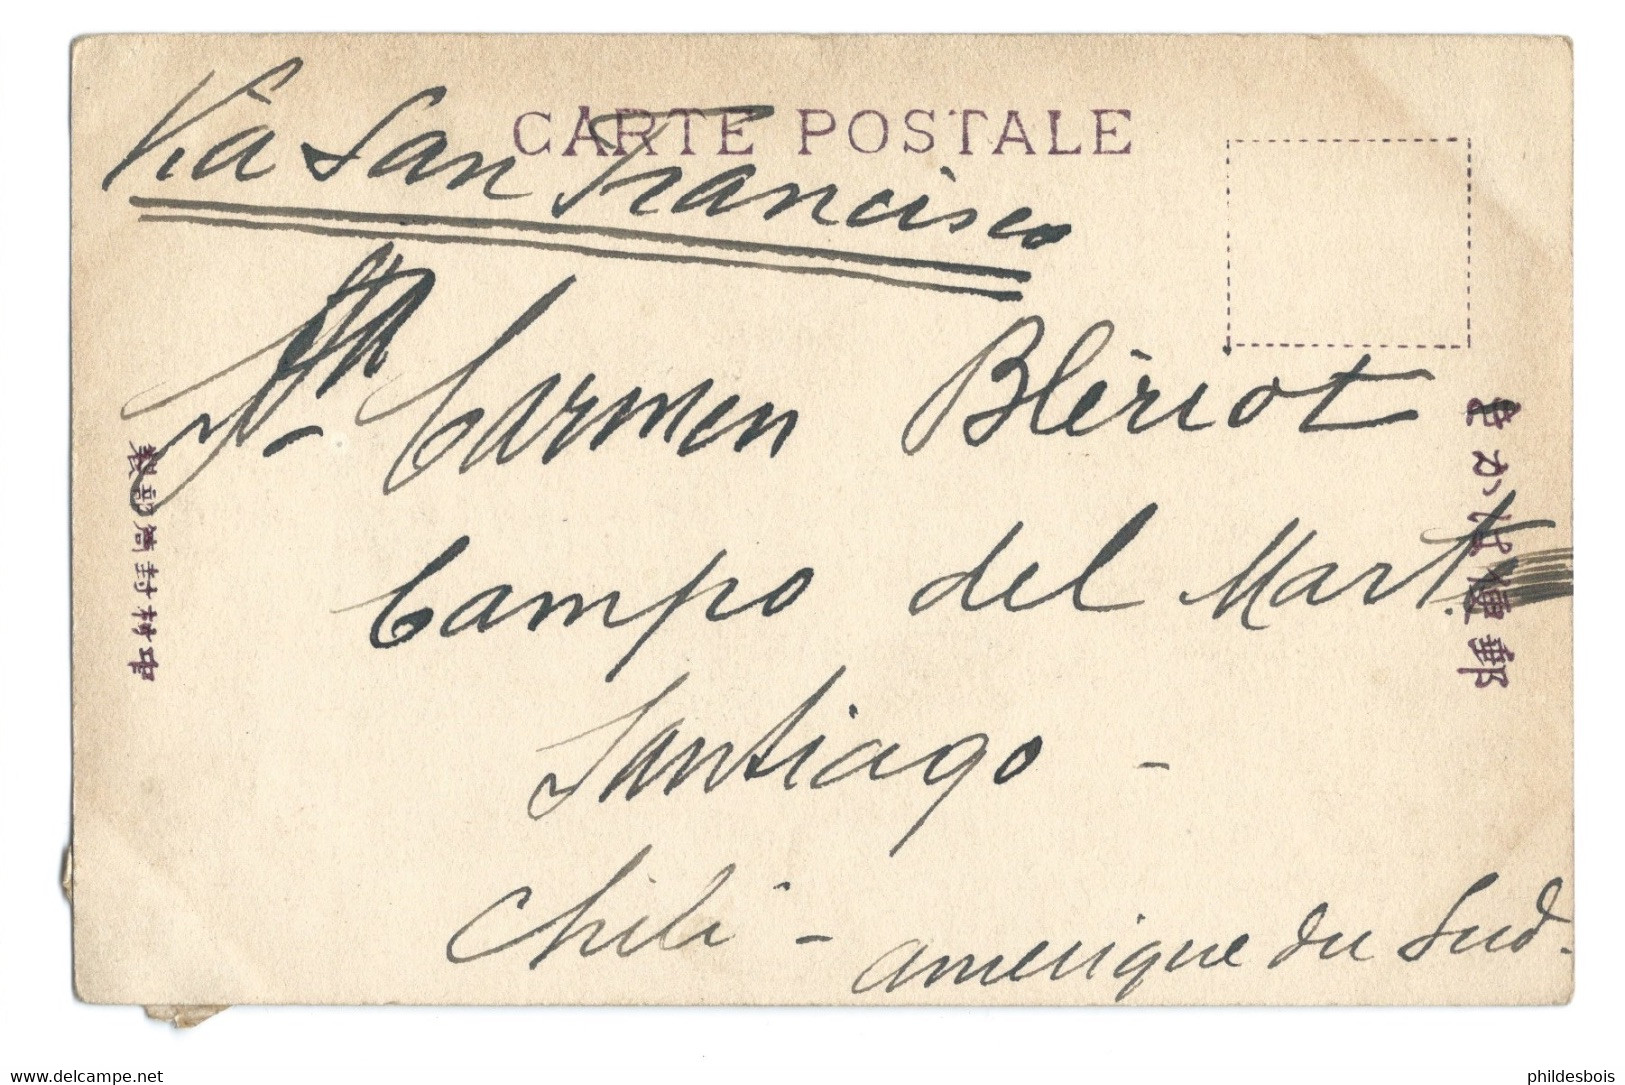 CARTE POSTALE
Via San Francisco
Sta Carmen Blériot
Campo del Mart.
Santiago -
Chili - amerique du Sud.
郵便はかき
中村封筒部製
www.delcampe.net
phildesbois